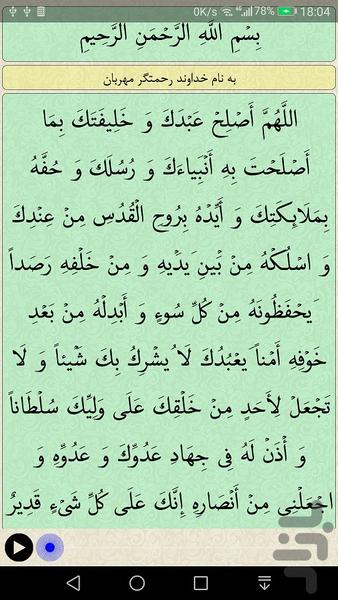 0K/s 4G 78% 18:04
بِسْمِ اللَّهِ الرَّحْمَنِ الرَّحِيمِ
به نام خداوند رحمتگر مهربان
اللَّهُمَّ أَصْلِحْ عَبْدَكَ وَ خَلِيفَتَكَ بِمَا
أَصْلَحْتَ بِهِ أَنْبِيَاءَكَ وَ رُسُلَكَ وَ حُفَّهُ
بِمَلَايِكَتِكَ وَ أَيِّدْهُ بِرُوحِ الْقُدُسِ مِنْ عِنْدِكَ
وَ اسْلُكْهُ مِنْ بَيْنِ يَدَيْهِ وَ مِنْ خَلْفِهِ رَصَداً
يَحْفَظُونَهُ مِنْ كُلِّ سُوءٍ وَ أَبْدِلْهُ مِنْ بَعْدِ
خَوْفِهِ أَمْناً يَعْبُدُكَ لَا يُشْرِكُ بِكَ شَيْئاً وَ لَا
تَجْعَلْ لِأَحَدٍ مِنْ خَلْقِكَ عَلَى وَلِيِّكَ سُلْطَاناً
وَ أْذَنْ لَهُ فِى جِهَادِ عَدُوِّكَ وَ عَدُوِّهِ وَ
اجْعَلْنِى مِنْ أَنْصَارِهِ إِنَّكَ عَلَى كُلِّ شَىْءٍ قَدِيرٌ